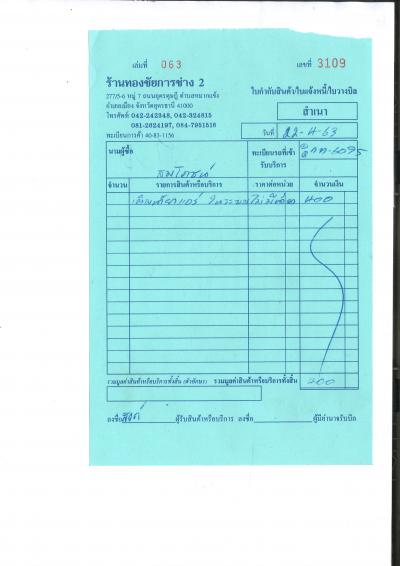 เล่มที่ 063 เลขที่ 3109
ร้านทองชัยการช่าง 2
277/5-6 หมู่ 7 ถนนอุดรดุษฎี ตำบลหมากแข้ง
อำเภอเมือง จังหวัดอุดรธานี 41000
โทรศัพท์ 042-242348, 042-324815
081-2624197, 084-7951516
ทะเบียนการค้า 40-83-1156
ใบกำกับสินค้า/ใบแจ้งหนี้/ใบวางบิล
สำเนา
วันที่ 22-4-63
นามผู้ซื้อ ทะเบียนรถที่เข้ารับบริการ
จำนวน รายการสินค้าหรือบริการ ราคาต่อหน่วย จำนวนเงิน
400
รวมมูลค่าสินค้าหรือบริการทั้งสิ้น (ตัวอักษร) รวมมูลค่าสินค้าหรือบริการทั้งสิ้น
ลงชื่อ ผู้รับสินค้าหรือบริการ ลงชื่อ ผู้มีอำนาจรับบิล